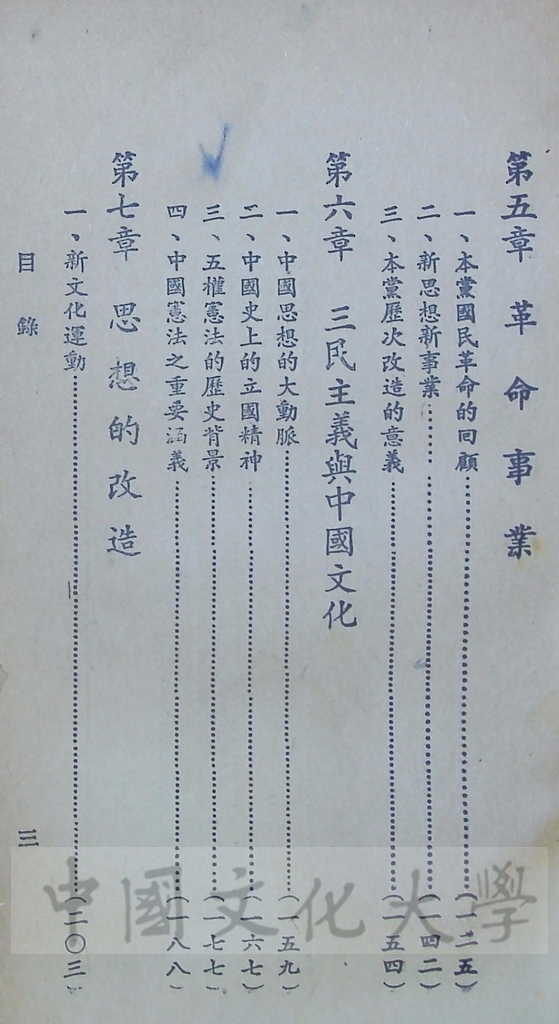 第五章 革命事業
一、本黨國民革命的回顧……(一二五)
二、新思想新事業……(一四二)
三、本黨歷次改造的意義……(一五四)
第六章 三民主義與中國文化
一、中國思想的大動脈……(一五九)
二、中國史上的立國精神……(一六七)
三、五權憲法的歷史背景……(一七七)
四、中國憲法之重要涵義……(一八八)
第七章 思想的改造
一、新文化運動……(二〇三)
目錄 三
中國文化大學